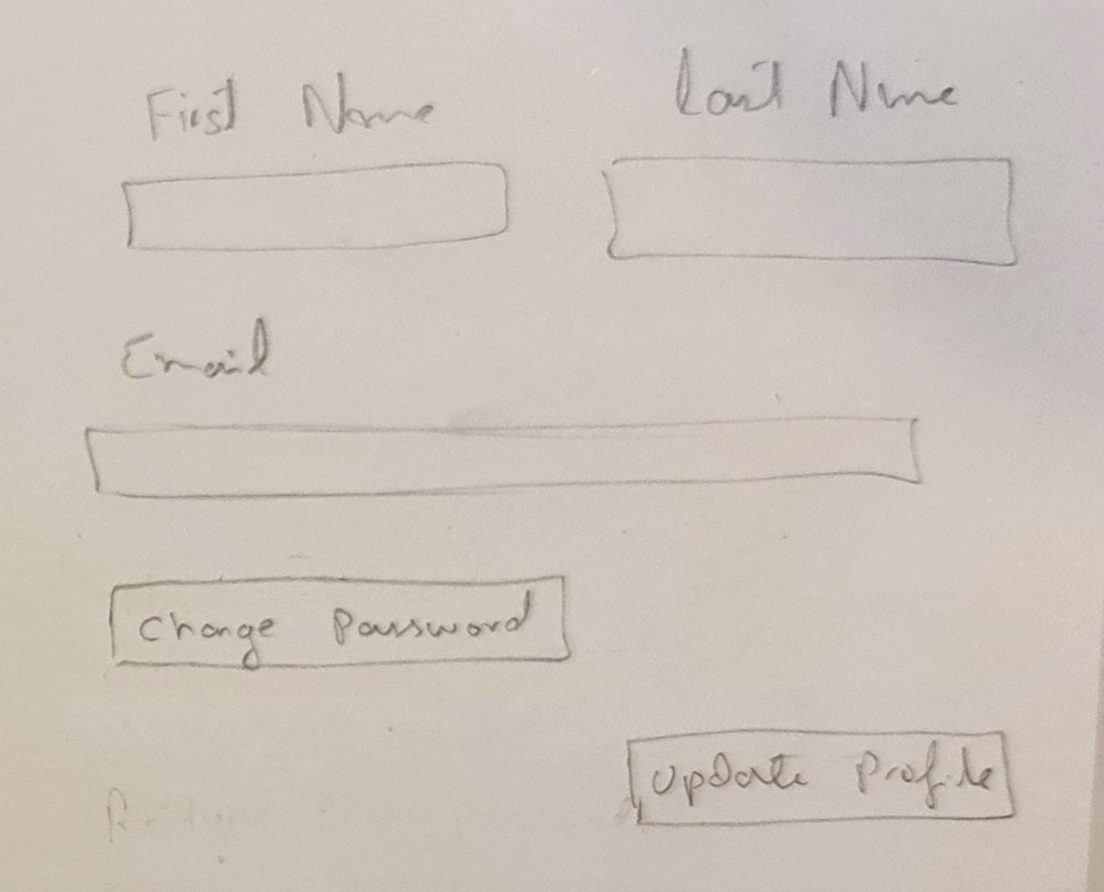 First Name
Last Name
Email
Change Password
Update Profile